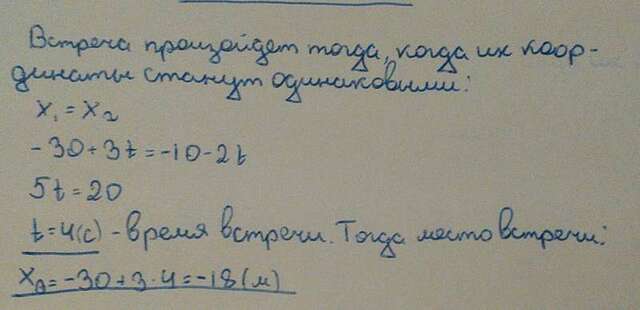 Встреча произойдет тогда, когда их коор-
динаты станут одинаковыми:
x₁ = x₂
-30+3t=-10-2t
5t=20
t=4(с) - время встречи. Тогда место встречи:
xв=-30+3·4=-18(м)